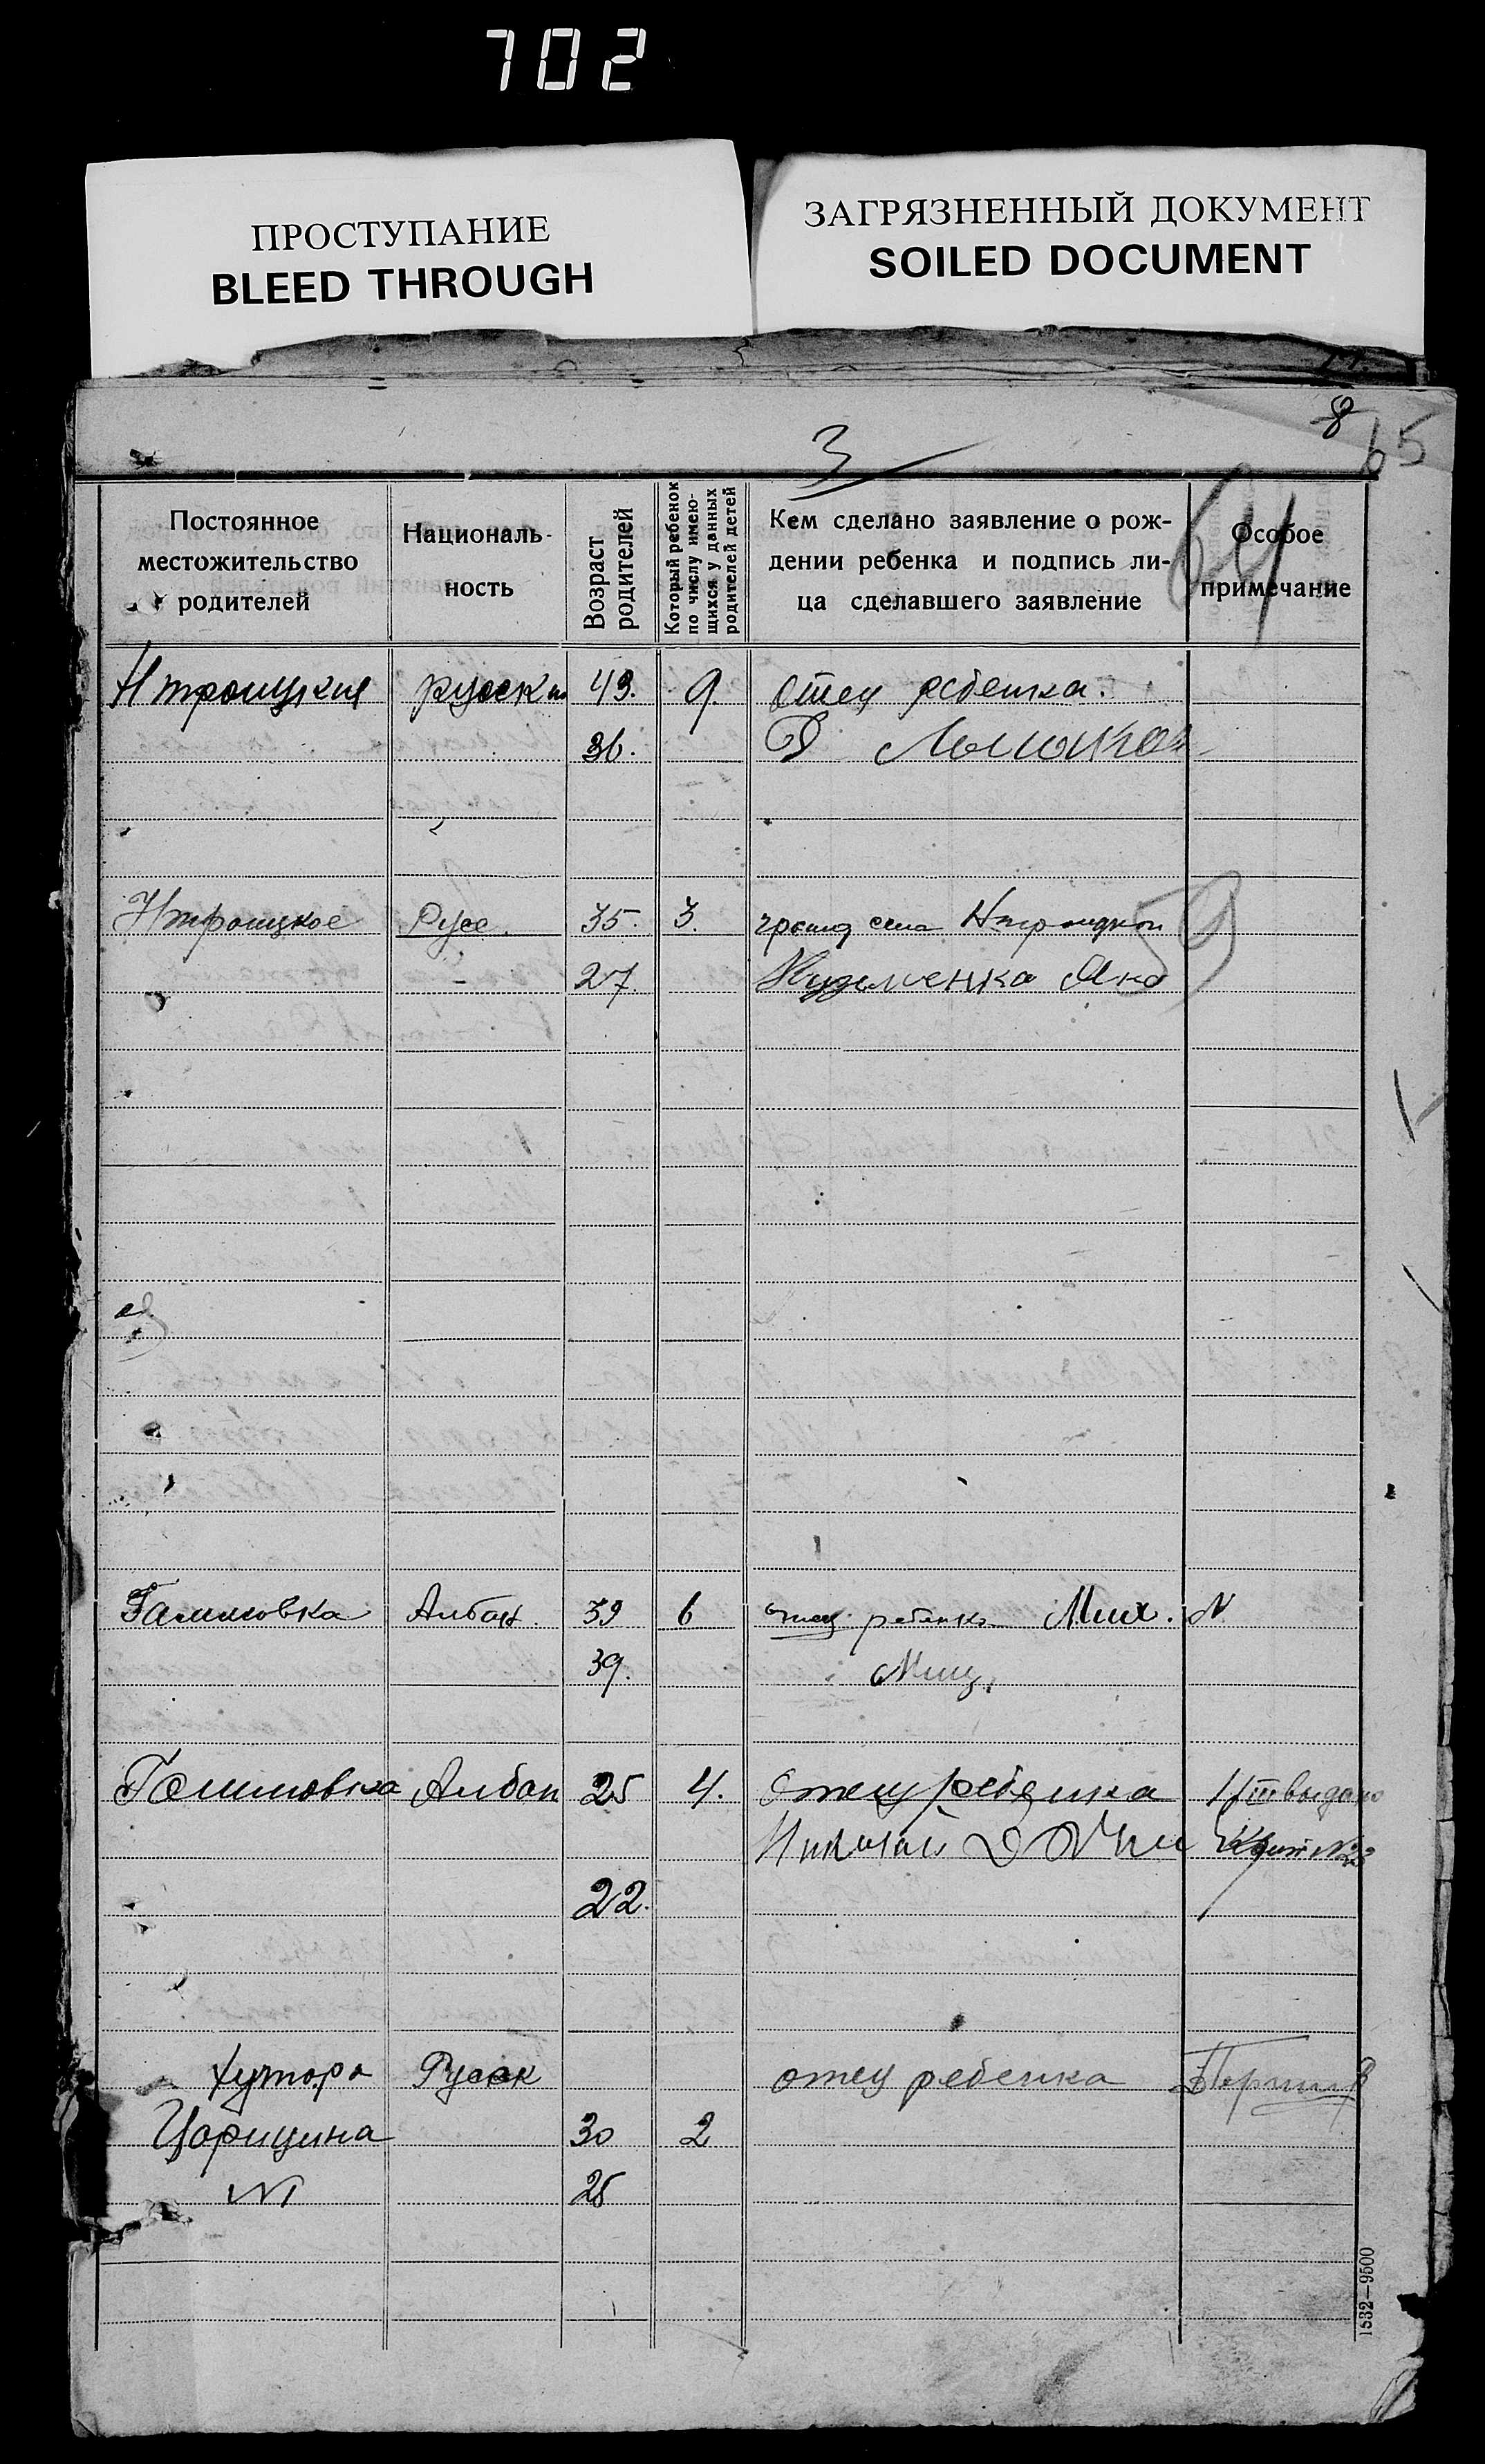 702
ПРОСТУПАНИЕ
BLEED THROUGH
ЗАГРЯЗНЕННЫЙ ДОКУМЕНТ
SOILED DOCUMENT
8
3
65
64
Постоянное местожительство родителей
Националь-ность
Возраст родителей
Который ребенок по числу имею-щихся у данных родителей детей
Кем сделано заявление о рож-дении ребенка и подпись ли-ца сделавшего заявление
Особое примечание
Нтроицкия русски 43. 9. Отец ребенка.
36.
Нтроицкое Русс. 35. 3. села Нтроицкой
27. Кузменка Яко
59
Гаммовка Албан. 39 6 отец ребенка Мих.
39.
Гаммовка Албан 25 4. Отец ребенка выдано
Николай
22.
Хутора Русск отец ребенка
Царицина 30 2
N1 25
1532—9500